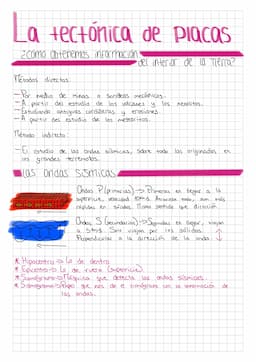 La tectónica de placas
¿cómo obtenemos información
del interior de la Tierra?
Métodos directos:
- Por medio de minas o sondeos mecánicos.
- A partir del estudio de los volcanes y los
- Estudiando antiguas cordilleras y
- A partir del estudio de los meteoritos.
Método indirecto:
- El estudio de las ondas sísmicas, sobre todo las originadas en
los grandes terremotos.
Las ondas sísmicas
Ondas P (primarias) → Primeras en llegar a la
superficie, velocidad
rápidas en sólidos. Misma dirección.
Ondas S (secundarias) → Segundas en llegar, viajan
a Solo viajan por los sólidos.
Perpendicular a la dirección de la onda
* Hipocentro → Lo de dentro
* Epicentro → Lo de fuera (superficie).
* Sismógrafo → Máquina que detecta las ondas sísmicas.
* Sismograma → Papel que nos da el sismógrafo con la información de
las ondas.